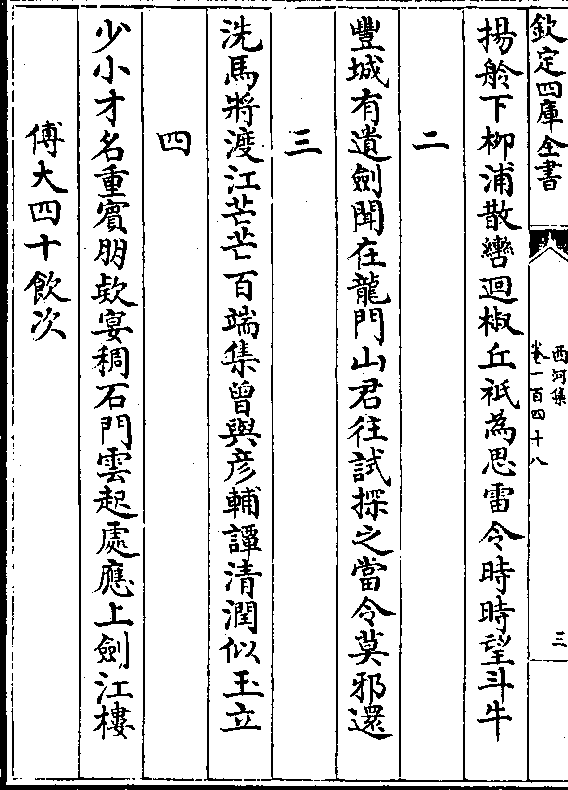 欽定四庫全書
西河集
卷一百四十八
三
揚舲下柳浦散轡迴椒丘祗為思雷令時時望斗牛
二
豐城有遺劍聞在龍門山君往試探之當令莫邪還
三
洗馬將渡江芒芒百端集曾與彦輔譚清潤似玉立
四
少小才名重賓朋欵宴稠石門雲起處應上劍江樓
傅大四十飲次